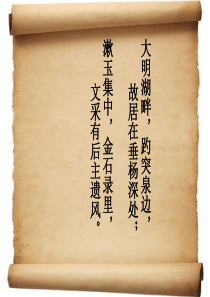 大明湖畔，趵突泉边，
故居在垂杨深处；
漱玉集中，金石录里，
文采有后主遗风。